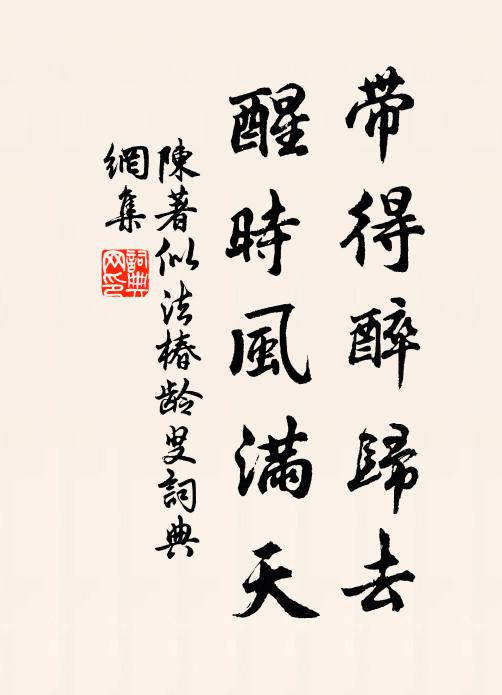 带得醉歸去
醒時風滿天
陳著似法椿龄叟詞典
網集
詞典
网印